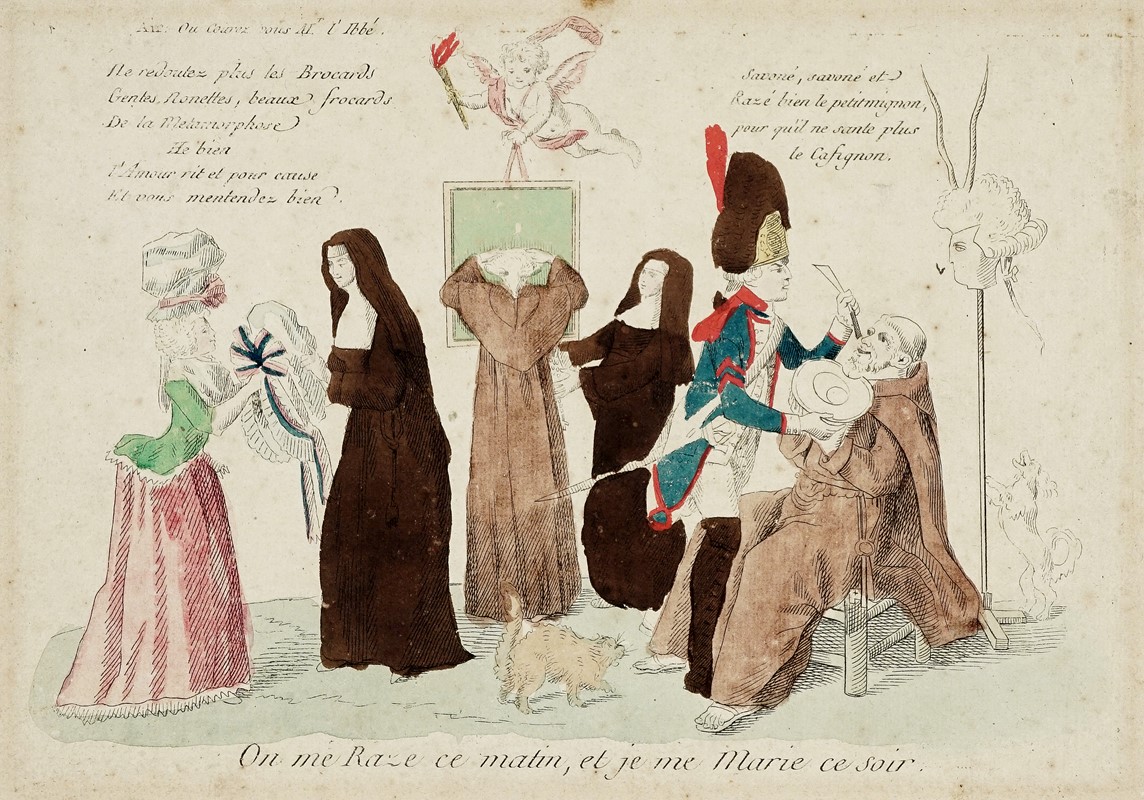 Air: Ou Courez vous Mr. l'Abbé.
Ne redoutez plus les Brocards
Gentes Nonettes, beaux frocards
De la Metamorphose
He bien
l'Amour rit et pour cause
Et vous mentendez bien.
Savoné, savoné et
Razé bien le petit mignon,
pour qu'il ne sante plus
le Cafignon.
On me Raze ce matin, et je me Marie ce soir.